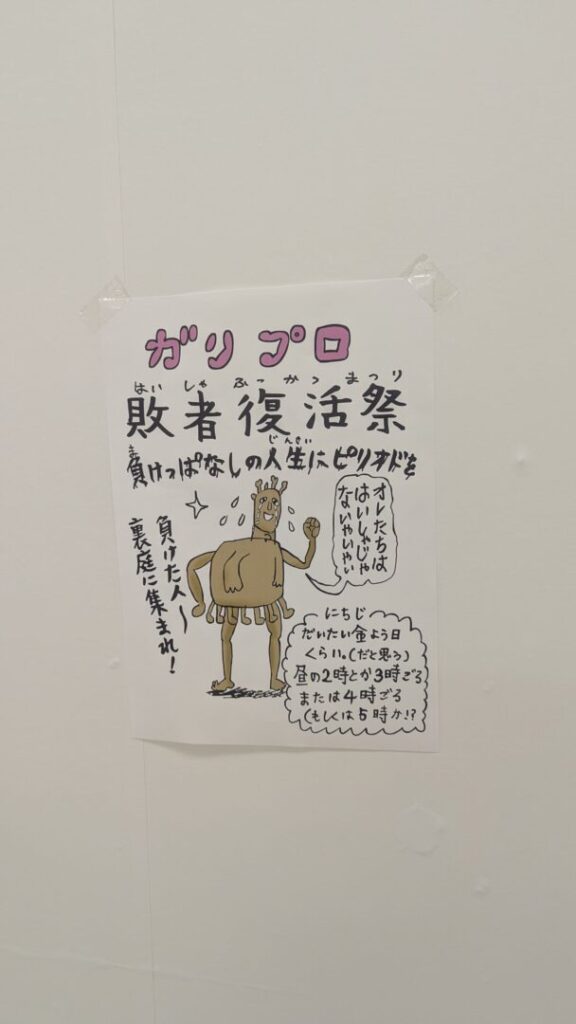 ガリプロ
はいしゃふっかつまつり
敗者復活祭
じんせい
負けっぱなしの人生にピリオドを
オレたちは
はいしゃじゃ
ないゃいゃい
負けた人〜
裏庭に集まれ!
にちじ
だいたい金よう日
くらい。(だと思う)
昼の2時とか3時ごろ
または4時ごろ
(もしくは5時か!?